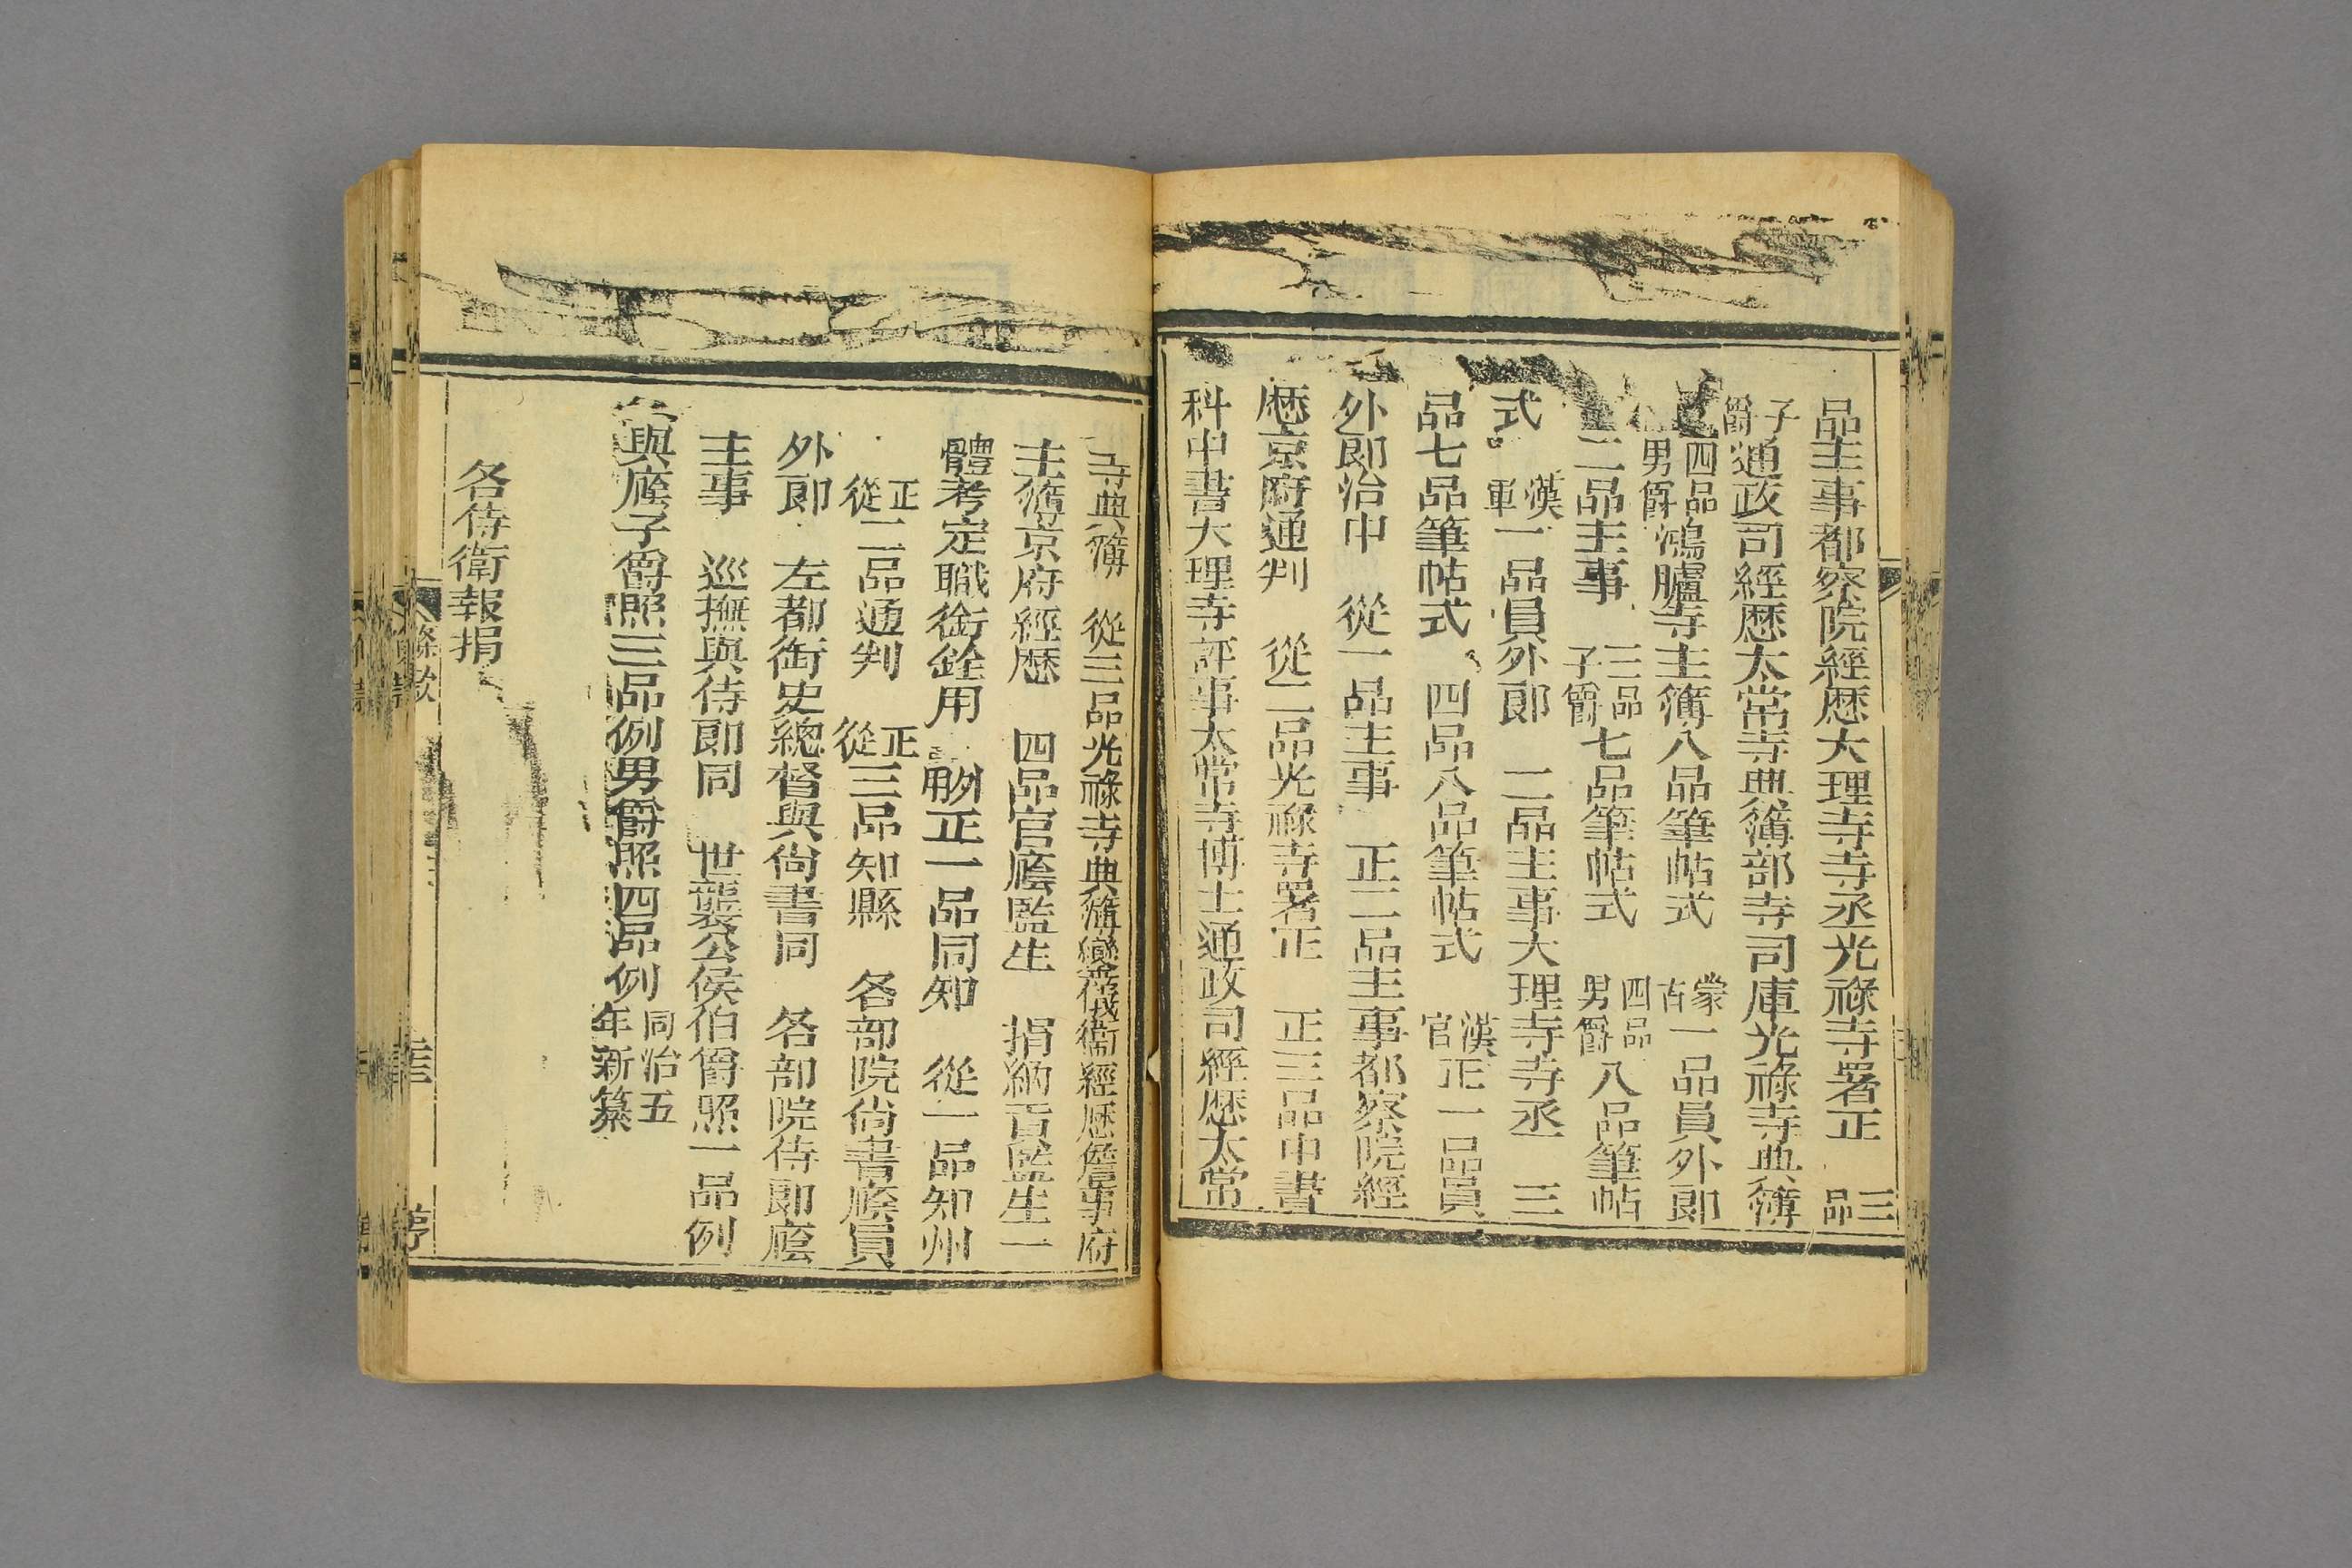 品主事都察院經歷大理寺寺丞光祿寺署正 三品
子爵通政司經歷太常寺典簿部寺司庫光祿寺典簿
四品男爵鴻臚寺主簿八品筆帖式 蒙古一品員外郎
二品主事 三品子爵七品筆帖式 四品男爵八品筆帖
式 漢軍一品員外郎 二品主事大理寺寺丞 三
品七品筆帖式 四品八品筆帖式 漢官正一品員
外郎治中 從一品主事 正二品主事都察院經
歷京府通判 從二品光祿寺署正 正三品中書
科中書大理寺評事太常寺博士通政司經歷太常
寺典簿 從三品光祿寺典簿鑾儀衞經歷詹事府
主簿京府經歷 四品官廕監生 捐納貢監生一
體考定職銜銓用 外用正一品同知 從一品知州
正從二品通判 正從三品知縣 各部院尙書廕員
外郎 左都御史總督與尙書同 各部院侍郎廕
主事 巡撫與侍郎同 世襲公侯伯爵照一品例
與廕子爵照三品例男爵照四品例同治五年新纂
各侍衛報捐
條款